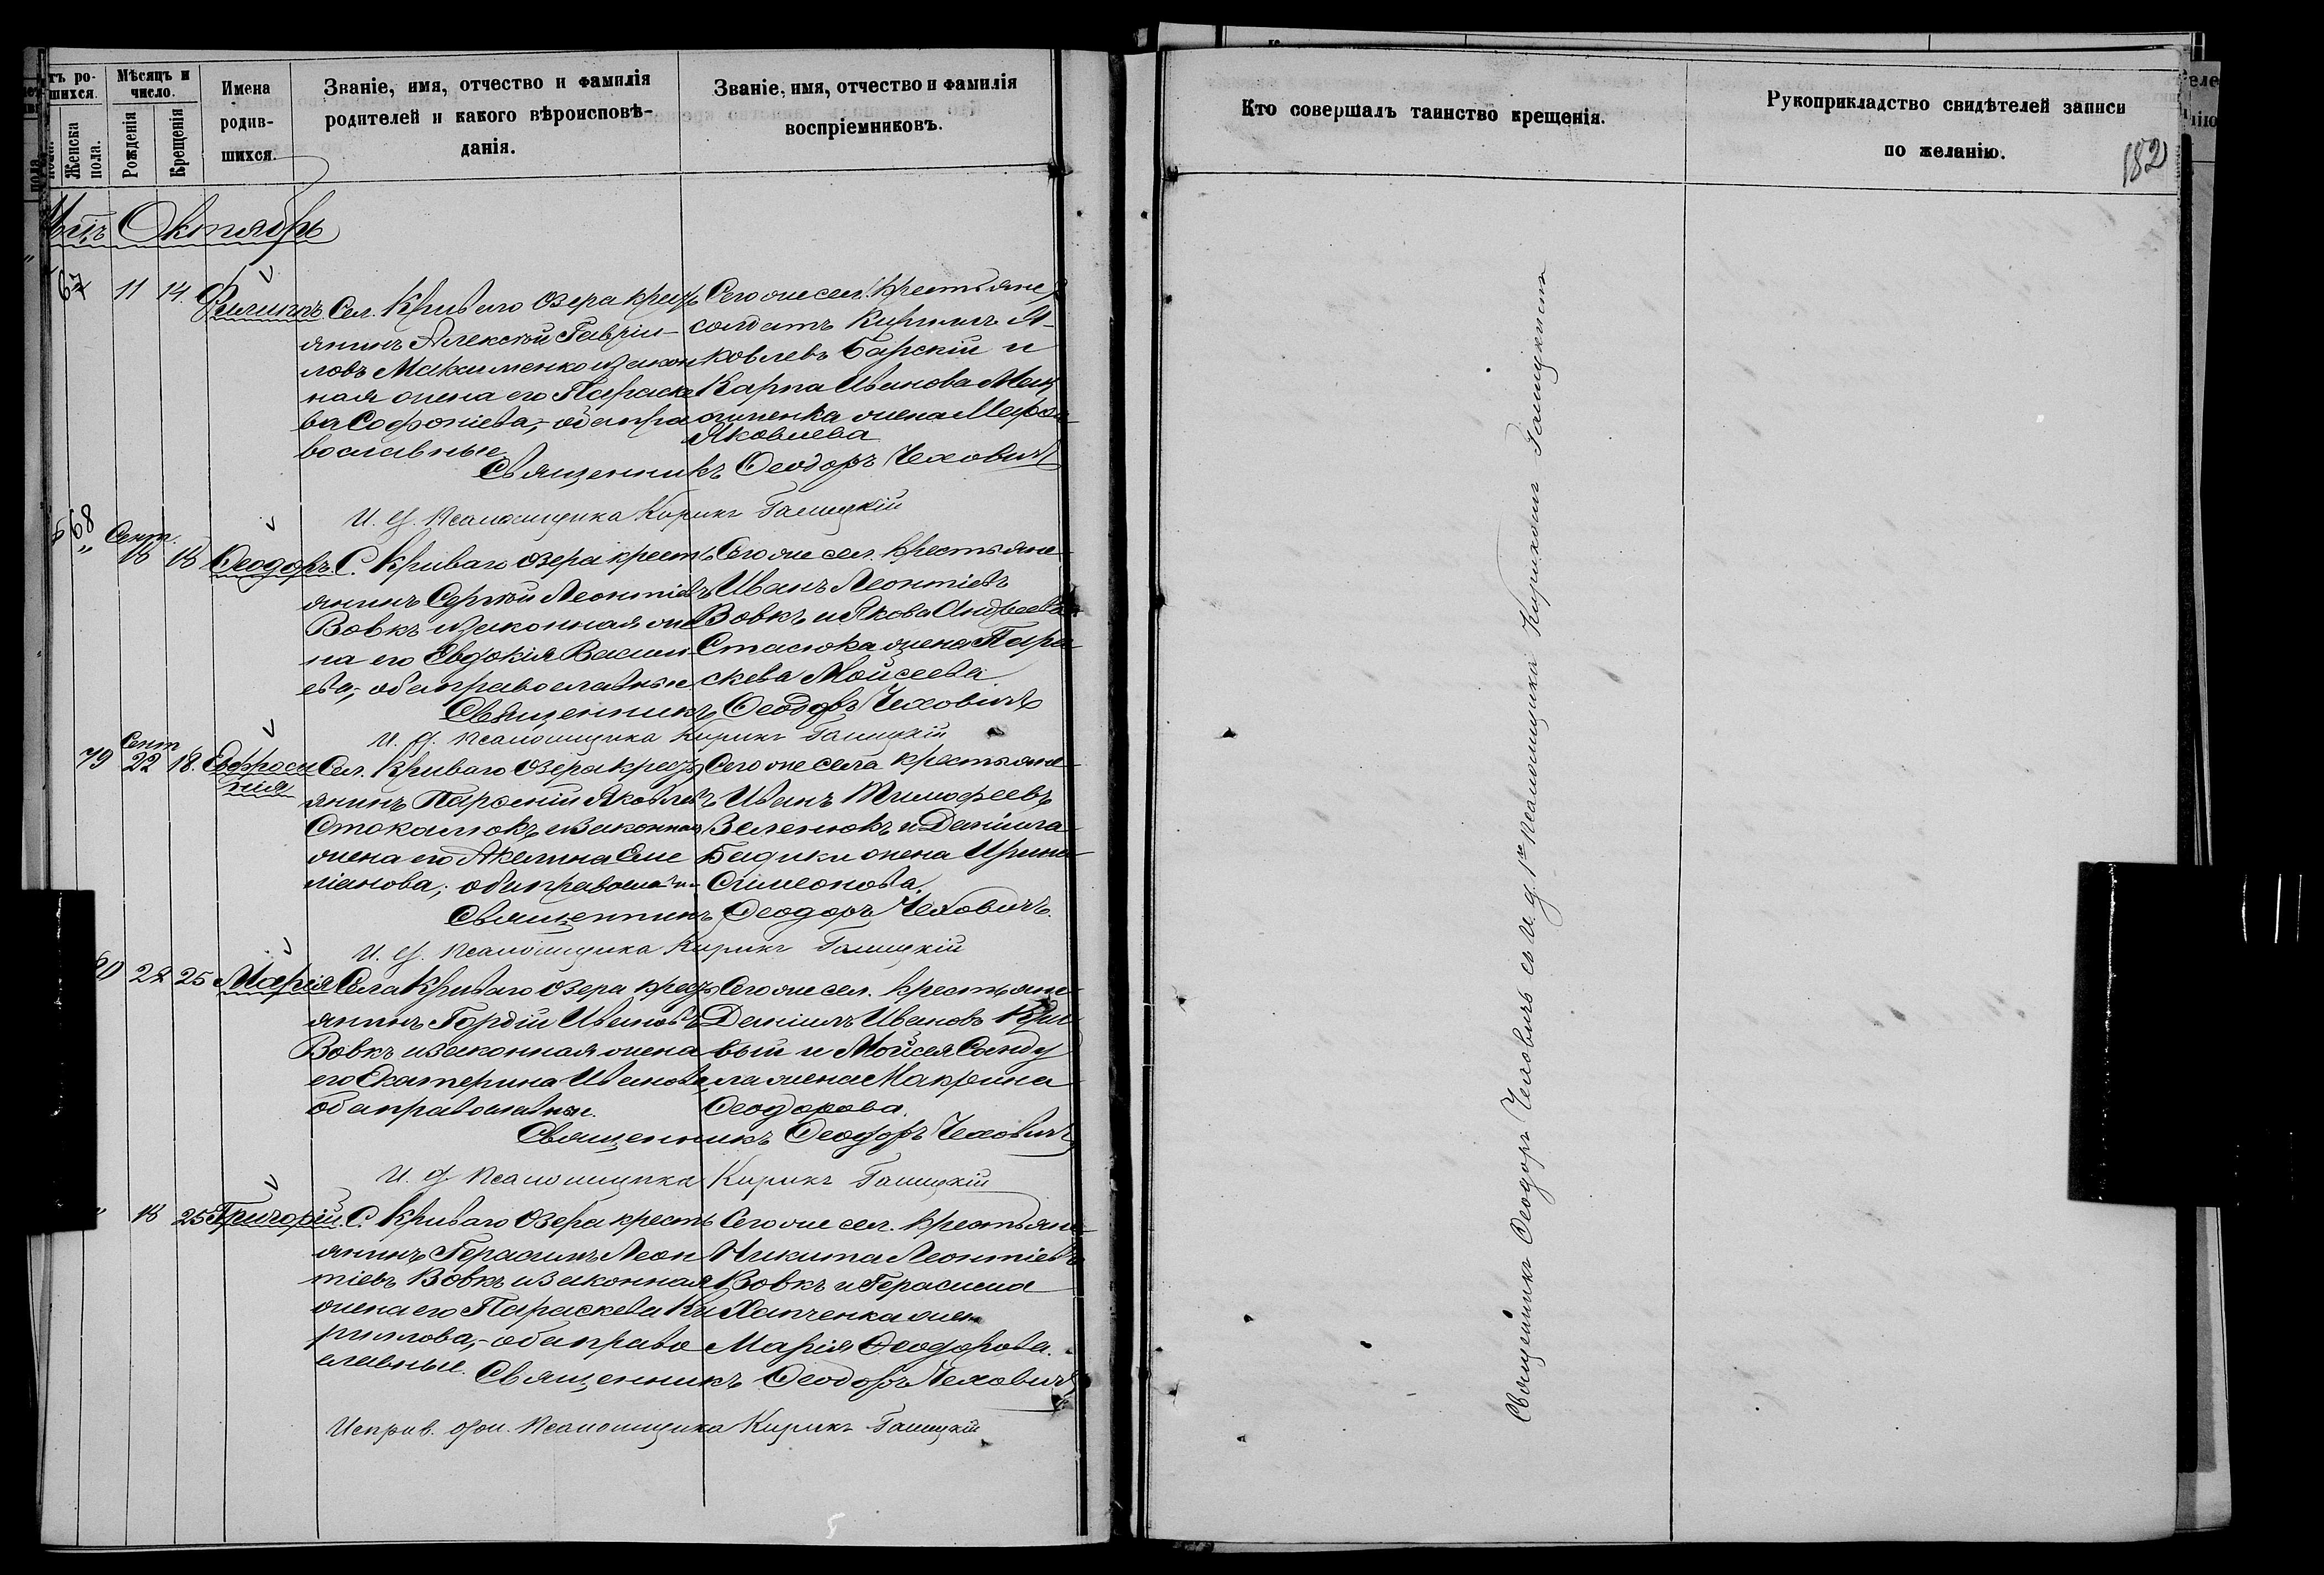 тъ ро-
шихся.
Мѣсяцъ и
число.
Женска
пола.
Рожденія
Крещенія
Имена
родив-
шихся.
Званіе, имя, отчество и фамилія
родителей и какого вѣроисповѣ-
данія.
Званіе, имя, отчество и фамилія
воспріемниковъ.
Октябрь
67 11 14. Филиппъ Сел. Криваго Озера крест
янинъ Алексѣй Гаврiи-
ловъ Максименко и закон
ная жена его Параске
ва Софоніева, оба пра
вославные
Сего же сел. крестьяне
солдатъ Кириллъ Я-
ковлевъ Барскій и
Карпа Иванова Мак
сименка жена Марѳа
Яковлева
Священникъ Ѳеодоръ Чеховичъ
И. д. Псаломщика Кирикъ Галицкій
68 Сент. 18 18 Ѳеодоръ. С. Криваго Озера крест
янинъ Сергѣй Леонтіевъ
Вовкъ и законная же
на его Евдокія Васил
ева, оба православные
Сего же сел. крестьяне
Иванъ Леонтіевъ
Вовкъ и Якова Андреева
Стасюка жена Пара
скева Мойсеева
Священникъ Ѳеодоръ Чеховичъ
И. д. Псаломщика Кирикъ Галицкій
79 Сент 22 18. Евфроси
нія
Сел. Криваго Озера крест
янинъ Парѳеній Яковлевъ
Стокалюкъ и законная
жена его Акилина Еме
ліанова; оба православн.
Сего же села крестьяне
Иванъ Тимофеевъ
Зеленюкъ и Даніила
Бадики жена Ирина
Симеонова.
Священникъ Ѳеодоръ Чеховичъ.
И. д. Псаломщика Кирикъ Галицкій
80 22 25 Марія Села Криваго Озера крест
янинъ Гордій Ивановъ
Вовкъ и законная жена
его Екатерина Иванова
оба православные.
Сего же сел. крестьяне
Даніилъ Ивановъ Кри
вый и Мойсея Санду
ла жена Макрина
Ѳеодорова.
Священникъ Ѳеодоръ Чеховичъ
И. д. Псаломщика Кирикъ Галицкій
18 25 Григорій. С. Криваго Озера крест
янинъ Герасимъ Леон
тіевъ Вовкъ и законная
жена его Параскева Ки
риллова, оба право
славные.
Сего же сел. крестьяне
Никита Леонтіевъ
Вовкъ и Герасима
Жена
Марія Ѳеодорова.
Священникъ Ѳеодоръ Чеховичъ
Исправ. дол. Псаломщика Кирикъ Галицкій
Кто совершалъ таинство крещенія.
Рукоприкладство свидѣтелей записи
по желанію.
182
Священникъ Ѳеодоръ Чеховичъ съ И. д. Псаломщика Кирикомъ Галицкимъ